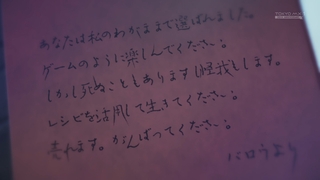 あなたは私のわがままで選ばれました。
ゲームのように楽しんでください。
しかし死ぬこともありますし怪我もします。
レシピを活用して生きてください。
売れます。がんばってください。
ハロうより